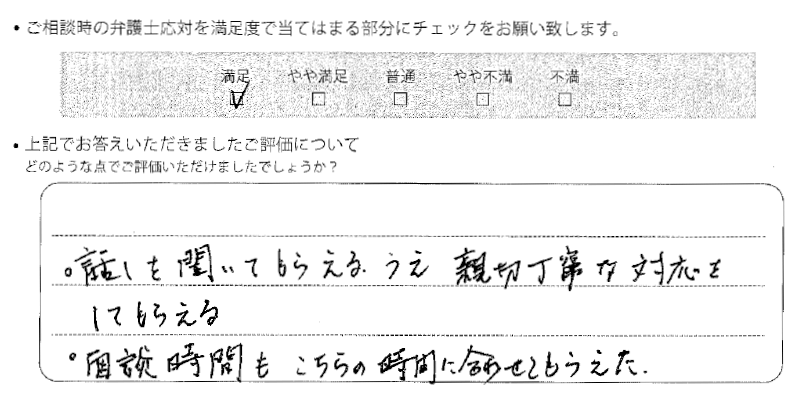 • ご相談時の弁護士応対を満足度で当てはまる部分にチェックをお願い致します。
満足 やや満足 普通 やや不満 不満
☑ □ □ □ □
• 上記でお答えいただきましたご評価について
どのような点でご評価いただけましたでしょうか？
。話しを聞いてもらえる うえ 親切丁寧な対応を
してもらえる
。面談時間も こちらの時間に合わせてもらえた.